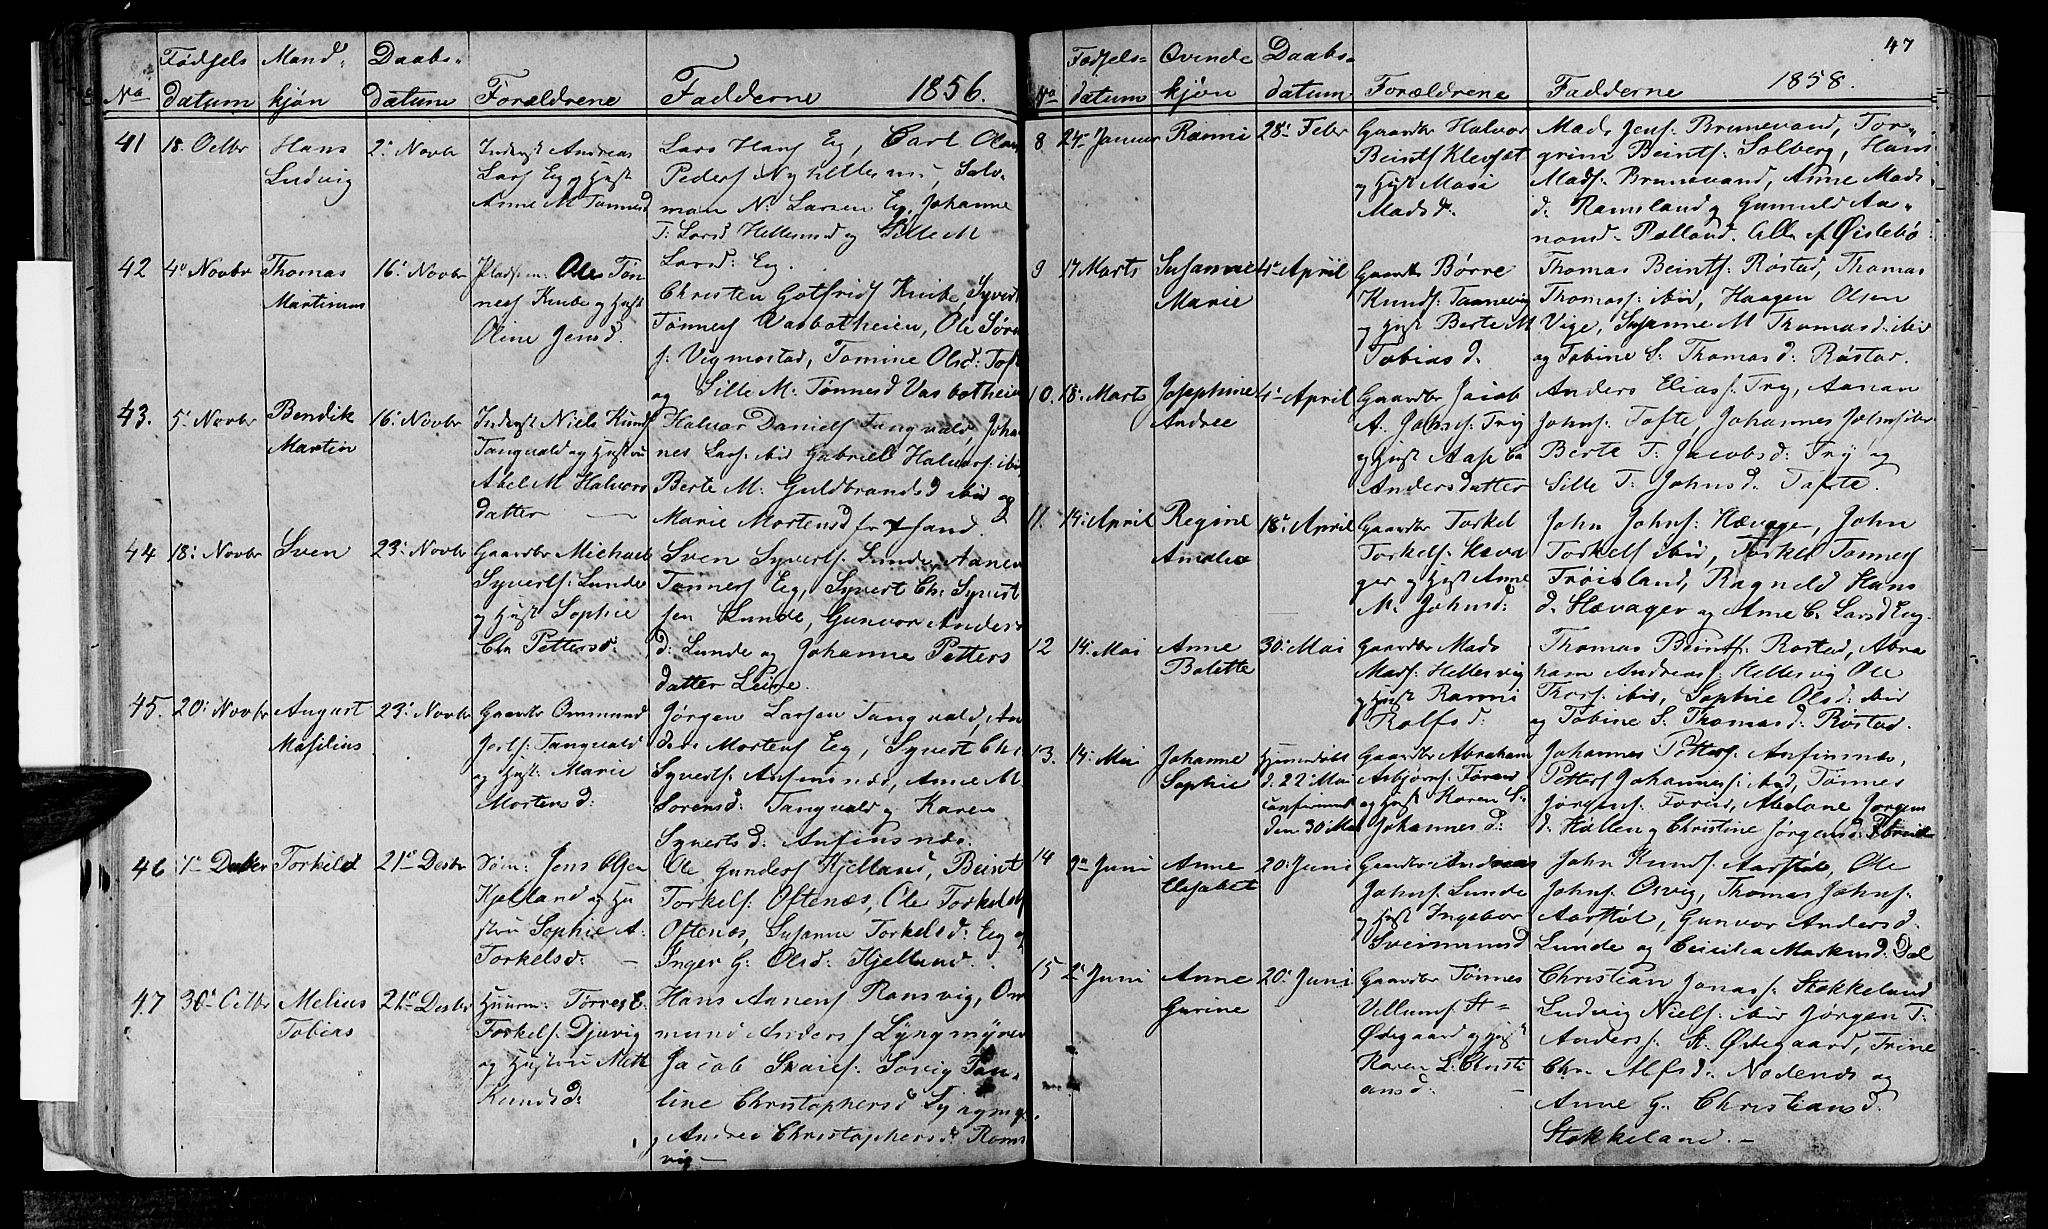 Fødsels Mand- Daabs-
No datum kjön Datum Forældrene Fadderne 1856.
41 18 Octbr Hans Ludvig 2 Novbr Andreas Lars Eg og Hust Anne M Tønnesd
Lars Hans Eg, Carl Olaus
Peders Nyhellesund, Salv-
man N. Larsen Eg, Johanne
T. Larsd Hellesund og Sille M
Larsd: Eg.
42 4 Novbr Thomas Martinus 16 Novbr Pladsm: Ole Tøn
nesf Knibe og Hust
Oline Jensd.
Christen Gotfrids Knibe, Syvert
Tønnesf Vasbotheien, Ole Sørn
f: Vigmostad, Tomine Olsd: Toft
og Sille M: Tønnesd Vasbotheien
43. 5 Novbr Bendik Martin 16 Novbr Inderst Niels Knudf
Tangvald og Hustru
Abel M. Halvors
datter
Halvor Daniels Tangvald, Joha
nes Larsf ibid Gabriel Halvorsf: ibid
Berte M. Guldbrandsd ibid og
Marie Mortensd
44 18 Novbr Sven 23 Novbr Gaardbr Michael
Syvertsf: Lunde
og Hust Sophie
Chr Pettersd:
Sven Syvertsf: Lunde, Aanen
Tønnesf Eg, Syvert Chr Syvert
sen Lunde, Gunvor Anders
d: Lunde og Johanne Petters
datter Leire.
45. 20 Novbr August Masilius 23 Novbr Gaardbr Ommund
Tangvald
og Hust: Marie
Mortensd:
Jørgen Larsen Tangvald, An
ders Mortens Eg, Syvert Chr.
Syvertsf: Anfinsnæs, Anne M.
Sorensd: Tangvald og Karen
Syvertsd: Anfinsnæs.
46 7 Decber Torkild 21 Desbr Jens Olsen
Kjelland og Hu
stru Sophie A.
Torkelsd:
Ole Gundersf Kjelland, Beint
Torkelsf: Oftenæs, Ole Torkelsf
Oftenæs, Susanne Torkelsd: Eeg og
Inger G: Olsd: Kjelland.
47 30 Octbr Melius Tobias 21 Desbr Huusm: Torres E.
Torkelsf Djuvig
og Hustru Mette
Knudsd:
Hans Aanensf Ramsvig, Om
mund Andersf Lyngmyren
Jacob Skaresf: Søvig, Tan-
line Christophersd Lyngmy.
Andrea Christophersd Rams
vig
47
Fødsels- Qvinde Daabs-
No datum kjön datum Forældrene Fadderne 1858.
8 24 Januar Ranni 28 Febr Gaardbr Halvor
Beintsf Klepsæt
og Hust Mari
Madsd.
Mads Jensf: Brunevand, Tor-
grim Beintsf: Solberg, Hans
Madsf: Brunevand, Anne Mads
d: Ramsland og Gunnild Aa-
nonsd: Rølland. Alle af Øislebø
9 17 Marts Susanne Marie 4 April Gaardbr Børre
Knudsf: Tannevig
og Hust Berte M
Tobiasd.
Thomas Beintsf: Røstad, Thomas
Thomasf: ibid, Haagen Olsen
Vige, Susanne M Thomasd: ibid
og Tobine S: Thomasd: Røstad.
10. 18 Marts Josephine Andree 4 April Gaardbr Jacob
A. Johnsf: Try
og Hust Aase Ca
Andersdatter
Anders Eliasf: Try, Aanan
Johnsf: Tofte, Johannes Johnsf ibid
Berte T: Jacobsd: Try og
Sille T: Johnsd: Tofte.
11. 14 April Regine Amalia 18 April Gaardbr Torkel
Torkelsf: Hæva
ger og Hust Anne
M. Johnsd:
John Johnsf: Hævager, John
Torkelsf ibid, Torkel Tønnesf
Frøisland, Ragnild Hans
d. Hævager og Anne C. Larsd Eeg
12 14 Mai Anne Bolette 30 Mai Gaardbr Mads
Madsf: Hellesvig
og Hust Ranni
Rolfsd:
Thomas Beintsf: Røstad, Abra
ham Andreasf: Hellesvig Ole
Thorsf: ibid, Sophie Olsd: ibid
og Tobine S: Thomasd: Røstad.
13. 14 Mai Johanne Sophie Hjemmedøbt
d. 22 Mai
confirmert
den 30 Mai
Gaardbr Abraham
Asbjørnsf: Førend
og Hust Karen S.
Johannesd:
Johannes Pettersf: Anfinsnæs,
Petter Johannesf: ibid, Tønnes
Jørgensf: Forend, Abelone Jørgens
d. Hallen og Christine Jørgensd
14 9 Juni Anne Elisabet 20 Juni Gaardbr Andreas
Johnsf: Lunde
og Hust Ingebor
Sveinundsd
John Knudsf: Aarstøl, Ole
Johnsf: Osvig, Thomas Johnsf:
Aarstøl, Gunvor Andersd.
Lunde og Cecilia Markusd: Dal
15 2 Juni Anne Gurine 20 Juni Gaardbr Tønnes
Villumsf St
Ødegaard og Hust
Karen L. Christi
ansd:
Christian Jonasf: Stokkeland
Ludvig Nielsf: ibid Jørgen T:
Andersf: St. Ødegaard, Trine
Chr. Alfsd: Nodenæs og
Anne G. Christiansd.
Stokkeland.